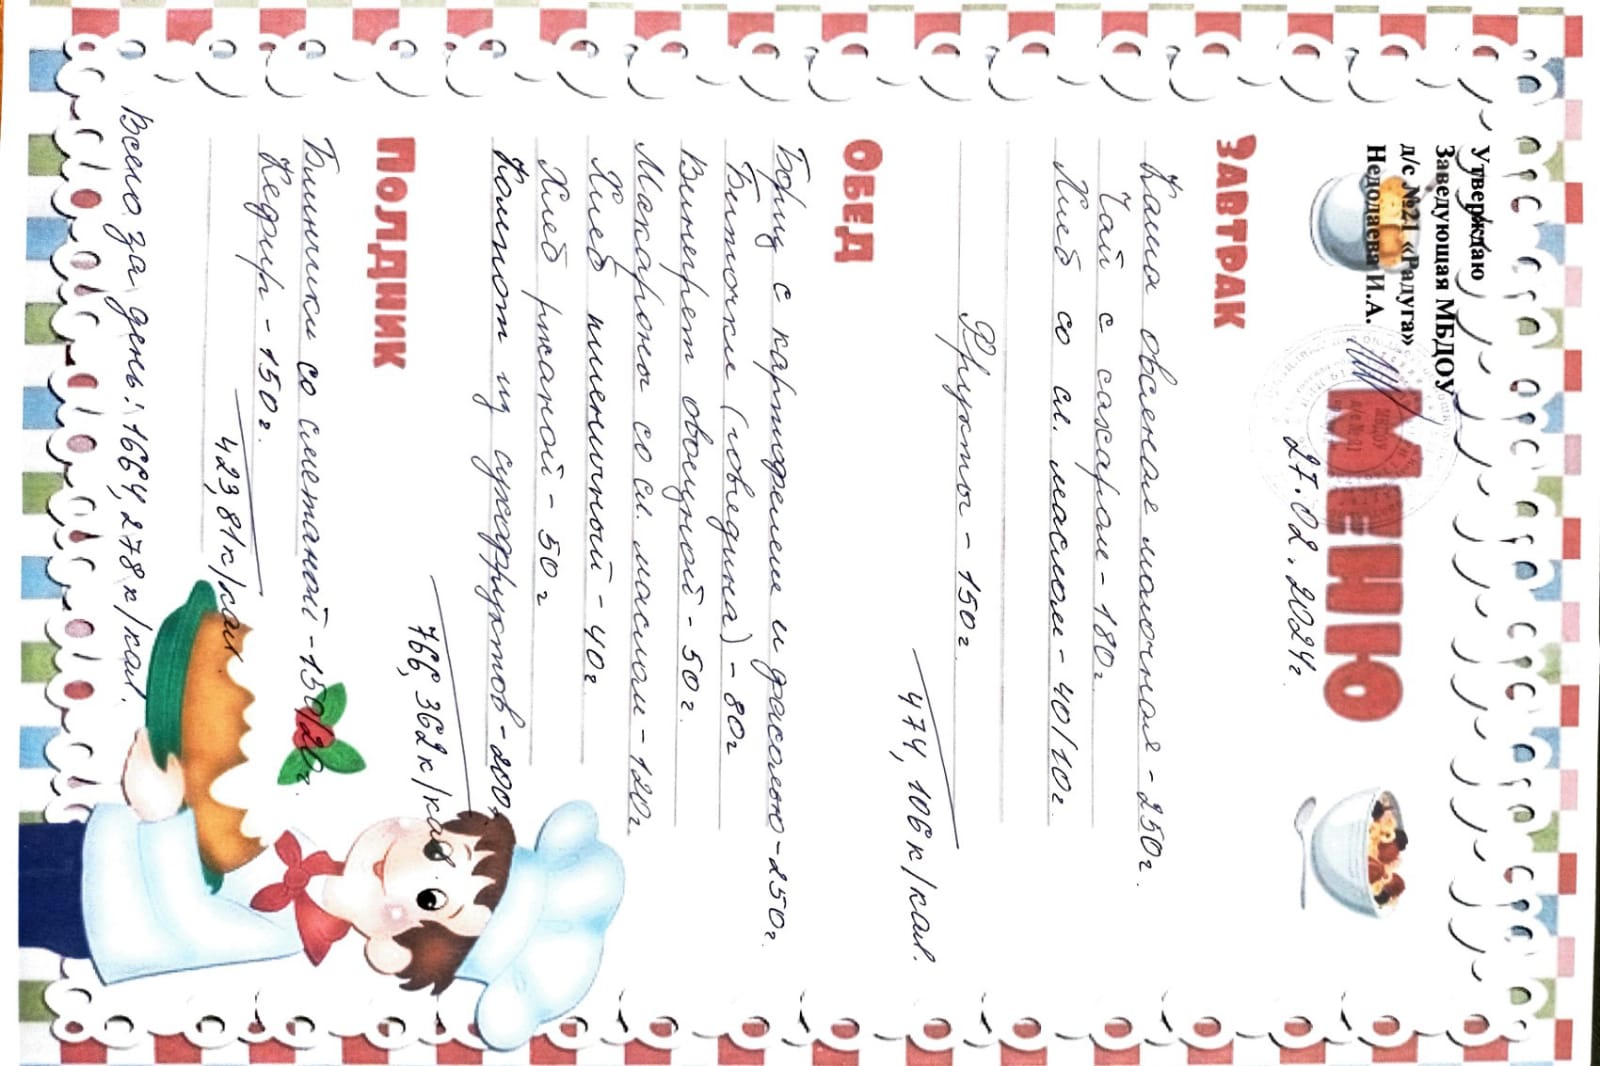 Утверждаю
Заведующая МБДОУ
д/с №21 «Радуга»
Недолаева И.А.
Меню
27.02.2024г.
Завтрак
Каша овсяная молочная - 250г.
Чай с сахаром - 180г.
Хлеб со сл. маслом - 40/10г.
Фрукты - 150г.
474,106 к/кал.
Обед
Борщ с картофелем и фасолью - 250г.
Биточки (говядина) - 80г
Винегрет овощной - 50г.
Макароны со сл. маслом - 120г
Хлеб пшеничный - 40г.
Хлеб ржаной - 50 г
Компот из сухофруктов - 200г.
766,362 к/кал
Полдник
Блинчики со сметаной - 150/20г.
Кефир - 150г.
423,81 к/кал
Всего за день: 1664,278 к/кал.